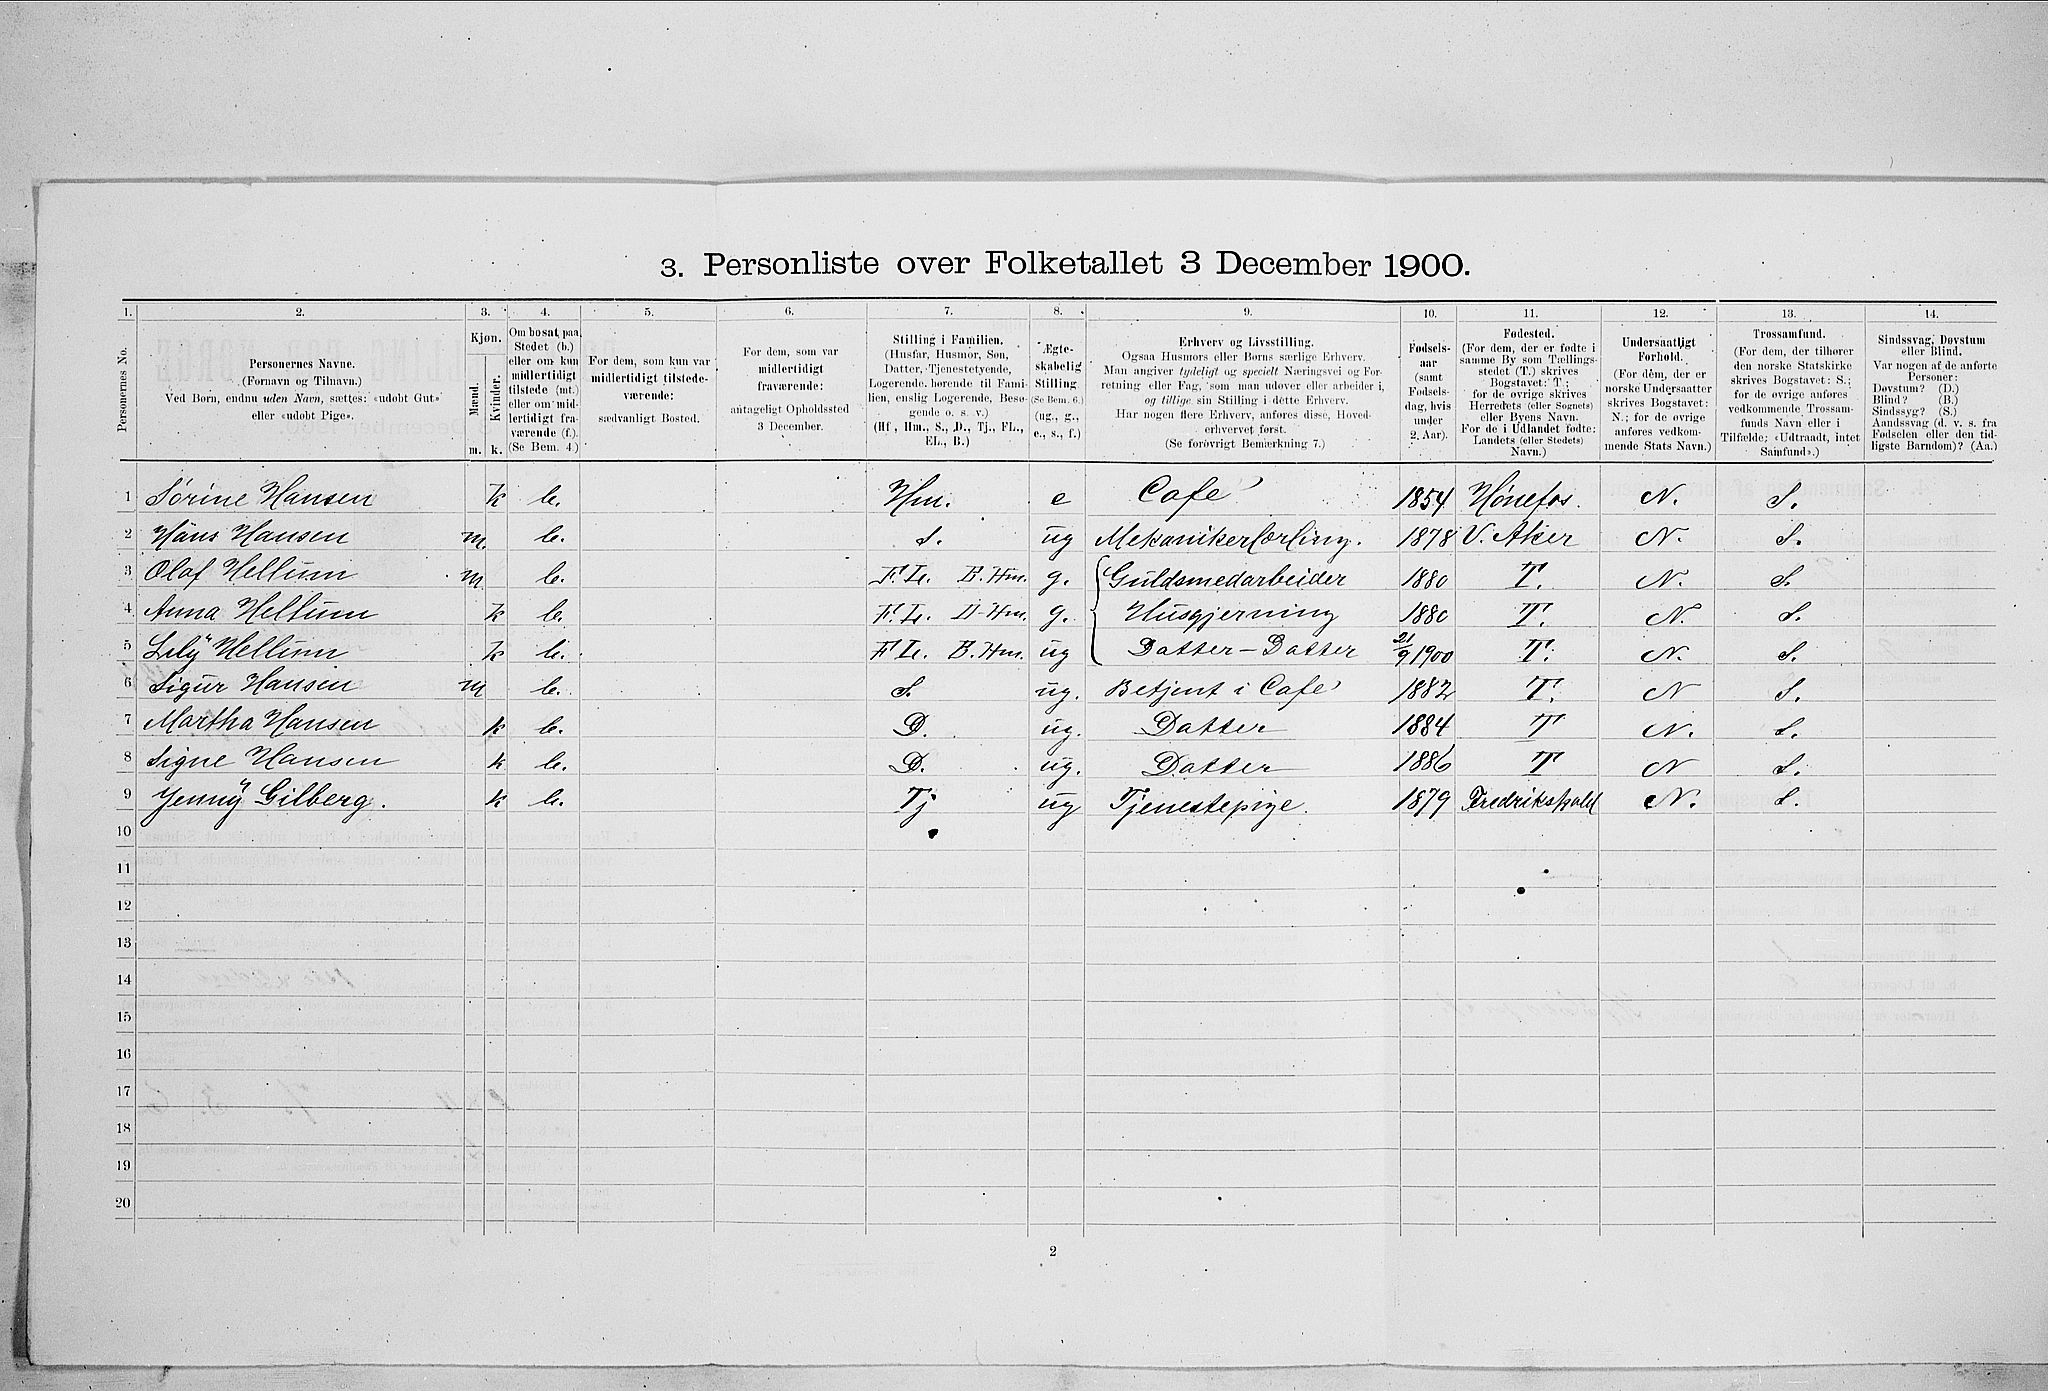 3. Personliste over Folketallet 3 December 1900.
1. 2. 3. 4. 5. 6. 7. 8. 9. 10. 11. 12. 13. 14.
Personernes No.
Personernes Navne.
(Fornavn og Tilnavn.)
Ved Børn, endnu uden Navn, sættes: «udobt Gut»
eller «udobt Pige».
Kjøn.
Mænd.
Kvinder.
m. k.
Om bosat paa
Stedet (b.)
eller om kun
midlertidigt
tilstede (mt.)
eller om mid-
lertidigt fra-
værende (f.).
(Se Bem. 4.)
For dem, som kun var
midlertidigt tilstede-
værende:
sædvanligt Bosted.
For dem, som var
midlertidigt
fraværende:
antageligt Opholdssted
3 December.
Stilling i Familien.
(Husfar, Husmor, Søn,
Datter, Tjenestetyende,
Logerende hørende til Fami-
lien, enslig Logerende, Besø-
gende o. s. v.)
(Hf., Hm., S., D., Tj., FL.,
EL., B.)
Ægte-
skabelig
Stilling.
(Se Bem. 6.)
(ug., g.,
e., s., f.)
Erhverv og Livsstilling.
Ogsaa Husmors eller Børns særlige Erhverv.
Man angiver tydeligt og specielt Næringsvei og For-
retning eller Fag, som man udøver eller arbeider i,
og tillige sin Stilling i dette Erhverv.
Har nogen flere Erhverv, anføres disse, Hoved-
erhvervet først.
(Se forøvrigt Bemærkning 7.)
Fødsels-
aar
(samt
Fødsels-
dag, hvis
under
2 Aar).
Fødested.
(For dem, der er fødte i
samme By som Tællings-
stedet (T.) skrives
Bogstavet: T.;
for de øvrige skrives
Herredets (eller Sognets)
eller Byens Navn.
For de i Udlandet fødte:
Landets (eller Stedets)
Navn.)
Undersaatligt
Forhold.
(For dem, der er
norske Undersaatter
skrives Bogstavet:
N.; for de øvrige
anføres vedkom-
mende Stats Navn.)
Trossamfund.
(For dem, der tilhører
den norske Statskirke
skrives Bogstavet: S.;
for de øvrige anføres
vedkommende Trossam-
funds Navn eller i
Tilfælde; «Udtraadt, intet
Samfund».)
Sindssvag, Døvstum
eller Blind.
Var nogen af de anførte
Personer:
Døvstum? (D.)
Blind? (B.)
Sindssyg? (S.)
Aandssvag (d. v. s. fra
Fødselen eller den tid-
ligste Barndom)? (Aa.)
1 Sørine Hansen k b. Hm. e Café 1854 Hønefos. N. S.
2 Hans Hansen m. b. S. ug Mekanikerlærling. 1878 V. Aker N. S.
3 Olaf Hellum m b. F.L. B. Hm. g. Guldsmedarbeider 1880 T. N. S.
4 Anna Hellum k b. F.L. D-Hm. g. Husgjerning 1880 T. N. S.
5 Lily Hellum k b. F L. B. Hm. ug Datter-Datter 21/9 1900 T. N. S.
6 Sigur Hansen m b. S. ug. Betjent i Café 1882 T. N S.
7 Martha Hansen k b. D. ug. Datter 1884 T N. S.
8 Signe Hansen k b. D. ug. Datter 1886 T N S.
9 Jenny Gilberg. k b. Tj ug Tjenestepige. 1879 Fredrikshald N. S.
10
11
12
13
14
15
16
17
18
19
20
2